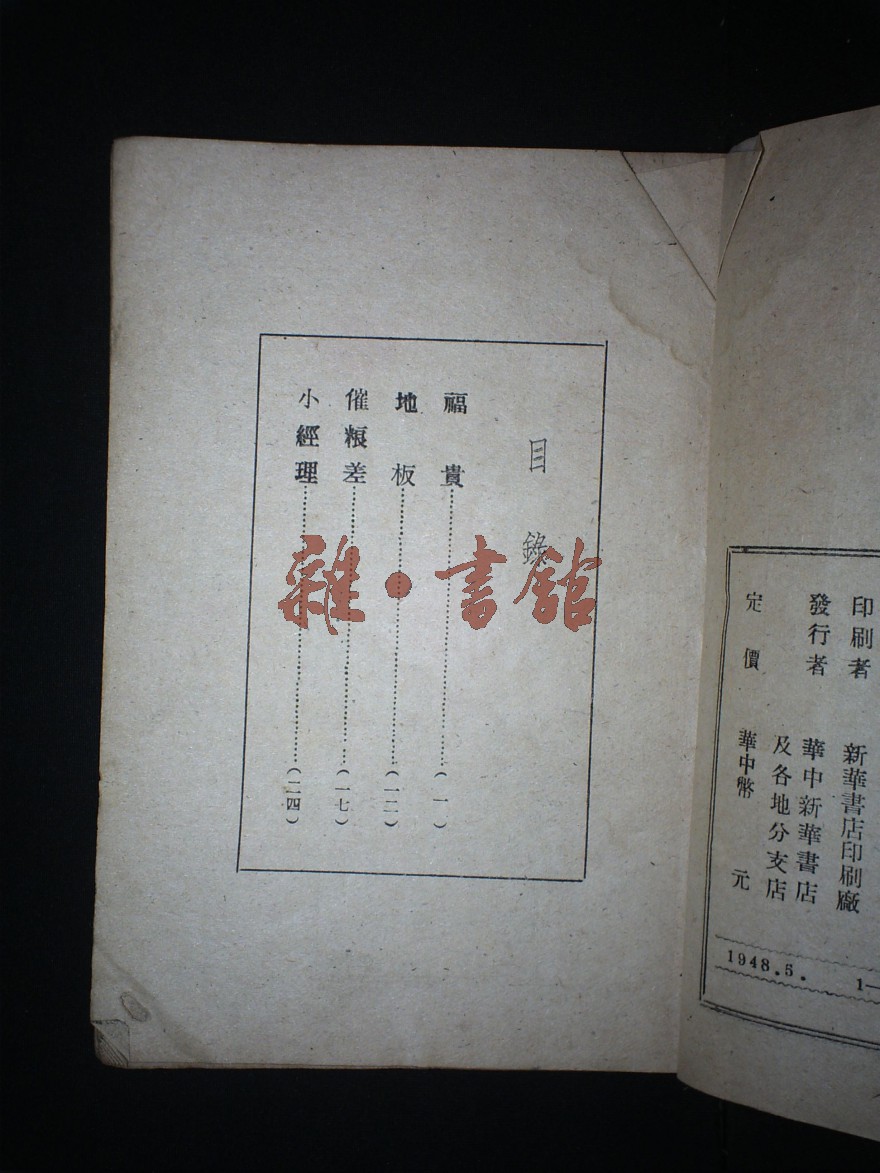 印刷者　新華書店印刷廠
發行者　華中新華書店
及各地分支店
定價　華中幣　元
1948.5.　1—
目錄
福貴……(一)
地板……(一二)
催粮差……(一七)
小經理……(二四)
雜·書館